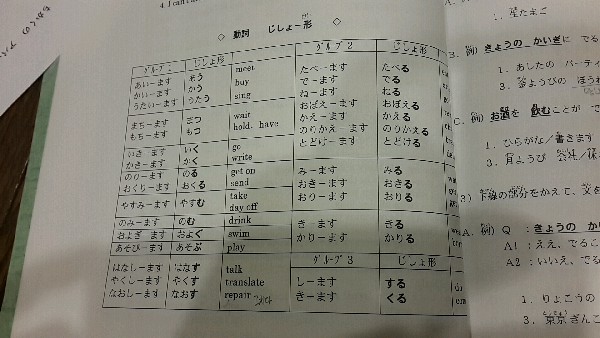 4. I can
◇ 動詞 じしょー形 ◇
グループ1 じしょ形 グループ2 じしょ形
あいーます あう meet たべーます たべる
かいーます かう buy でーます でる
うたいーます うたう sing ねーます ねる
おぼえーます おぼえる
まちーます まつ wait かえーます かえる
もちーます もつ hold, have のりかえーます のりかえる
いきーます いく go とどけーます とどける
かきーます かく write
のりーます のる get on みーます みる
おくりーます おくる send おきーます おきる
やすみーます やすむ take day off おりーます おりる
のみーます のむ drink きーます きる
およぎーます およぐ swim かりーます かりる
あそびーます あそぶ play
グループ3 じしょ形
はなしーます はなす talk しーます する
やくしーます やくす translate きーます くる
なおしーます なおす repair
1. 星たまこ
B. 例) きょうの かいぎに で
1. あしたの パーティ
3. 金ようびの
C. 例) お酒を 飲むことが で
1. ひらがな/書きます
3. 月ようび 会社/
下線の部分をかえて、文を
A. 例) Q : きょうの か
A1 : ええ、でるこ
A2 : いいえ、でる
1. りょこうの
3. 東京ぎんこ